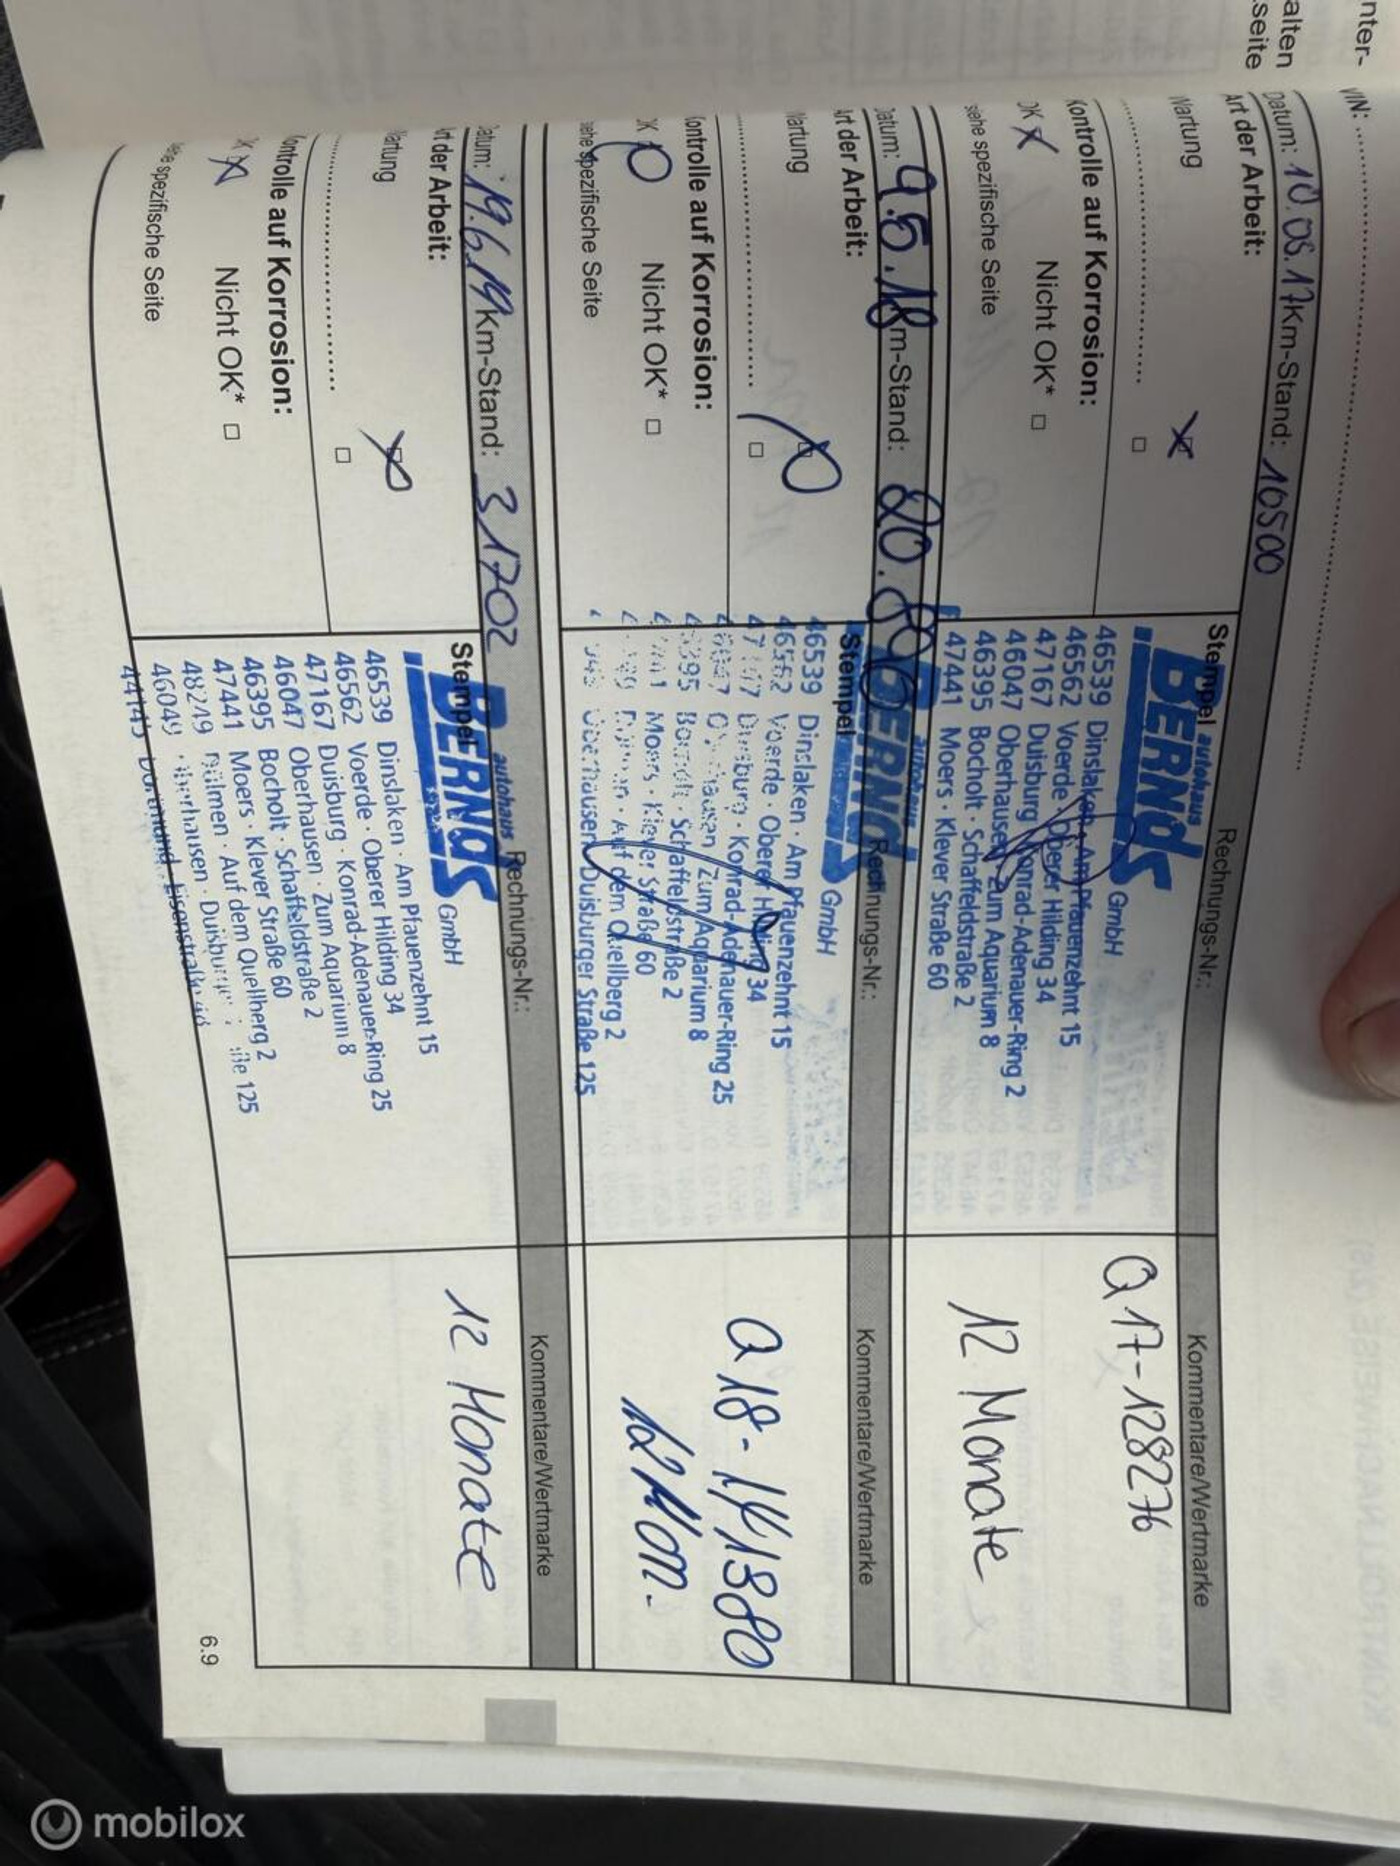 nter-
alten
seite
VIN:
Datum: 10.05.17 Km-Stand: 10500
Rechnungs-Nr.:
Kommentare/Wertmarke
Art der Arbeit:
Wartung
Kontrolle auf Korrosion:
OK Nicht OK*
siehe spezifische Seite
Stempel
autohaus
BERNdS GmbH
46539 Dinslaken · Am Pfauenzehnt 15
46562 Voerde · Oberer Hilding 34
47167 Duisburg · Konrad-Adenauer-Ring 2
46047 Oberhausen · Zum Aquarium 8
46395 Bocholt · Schaffeldstraße 2
47441 Moers · Klever Straße 60
Q17-128276
12 Monate
Datum: 9.5.18 Km-Stand:
Rechnungs-Nr.:
Kommentare/Wertmarke
Art der Arbeit:
Wartung
Kontrolle auf Korrosion:
OK Nicht OK*
siehe spezifische Seite
Stempel
autohaus
BERNdS GmbH
46539 Dinslaken · Am Pfauenzehnt 15
46562 Voerde · Oberer Hilding 34
Duisburg · Konrad-Adenauer-Ring 25
Zum Aquarium 8
Schaffeldstraße 2
Moers · Klever Straße 60
Auf dem Quellberg 2
Oberhausen · Duisburger Straße 125
Q18-141380
12 Mon.
Datum: 19.6.19 Km-Stand: 31702
Rechnungs-Nr.:
Kommentare/Wertmarke
Art der Arbeit:
Wartung
Kontrolle auf Korrosion:
OK Nicht OK*
siehe spezifische Seite
Stempel
autohaus
BERNdS GmbH
46539 Dinslaken · Am Pfauenzehnt 15
46562 Voerde · Oberer Hilding 34
47167 Duisburg · Konrad-Adenauer-Ring 25
46047 Oberhausen · Zum Aquarium 8
46395 Bocholt · Schaffeldstraße 2
47441 Moers · Klever Straße 60
48249 Dülmen · Auf dem Quellberg 2
46049 Oberhausen · Duisburger Straße 125
44145 Dortmund · Eisenstraße
12 Monate
6.9
mobilox